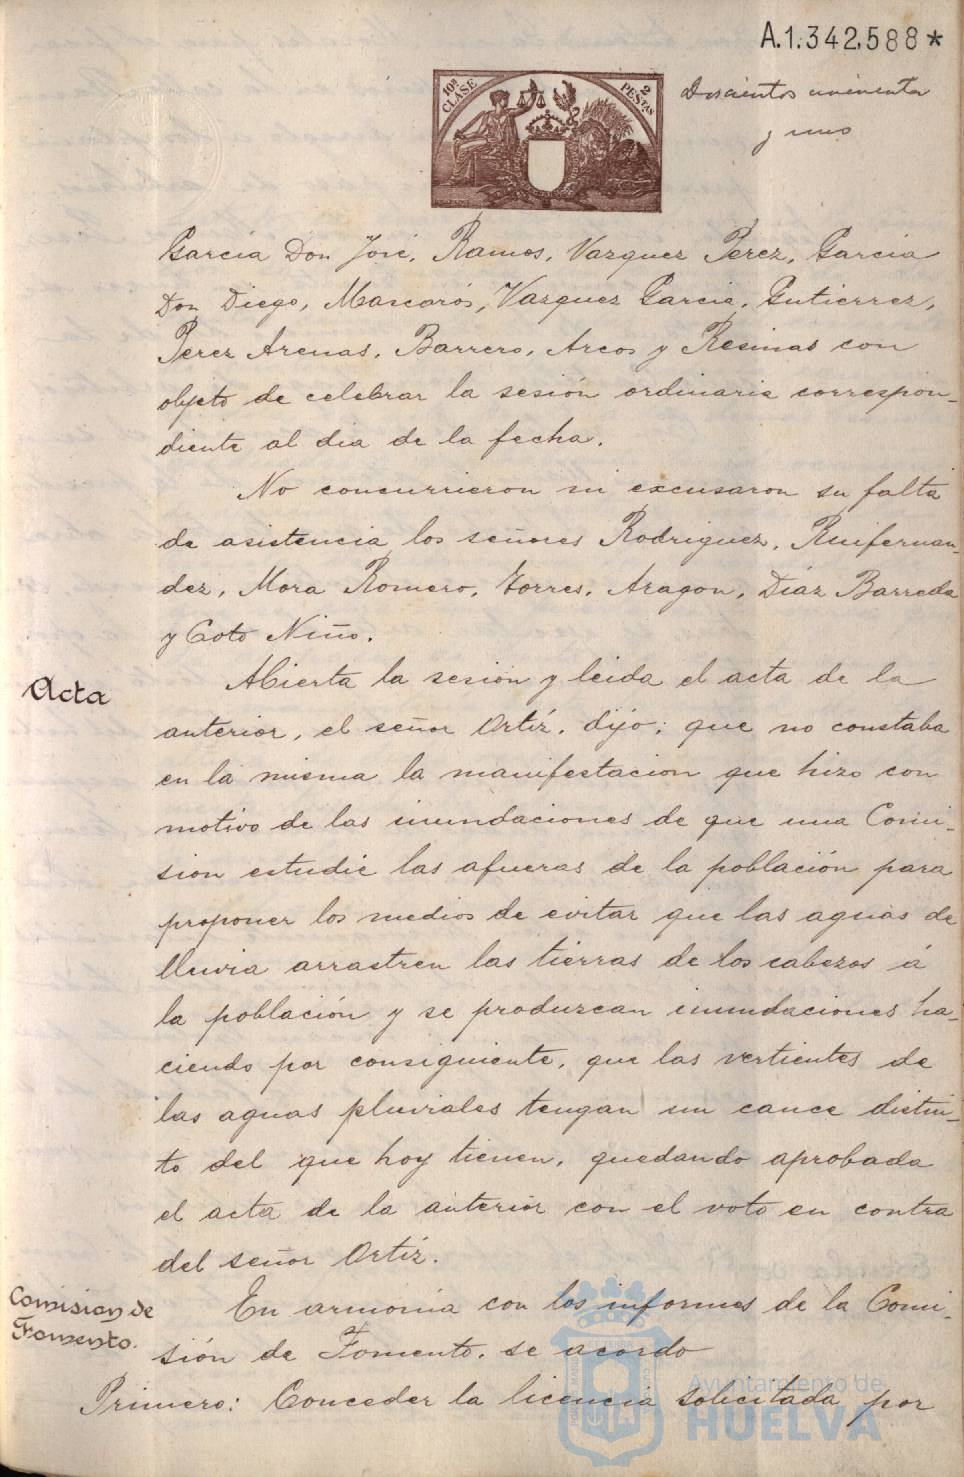 A.1.342.588*
10ª CLASE
2 PESTAS
Doscientos cincuenta
y uno
Garcia Don José, Ramos, Vazquez Perez, Garcia
Don Diego, Mascarós, Vazquez Garcia, Gutierrez,
Perez Arenas, Barrero, Arcos y Resinas con
objeto de celebrar la sesión ordinaria correspon-
diente al dia de la fecha.
No concurrieron ni excusaron su falta
de asistencia los señores Rodriguez, Ruifernan-
dez, Mora Romero, Torres, Aragon, Diaz Barreda
y Coto Niño.
Acta
Abierta la sesión y leida el acta de la
anterior, el señor Ortíz, dijo; que no constaba
en la misma la manifestacion que hizo con
motivo de las inundaciones de que una Comi-
sion estudie las afueras de la población para
proponer los medios de evitar que las aguas de
lluvia arrastren las tierras de los cabezos á
la población y se produzcan inundaciones ha-
ciendo por consiguiente, que las vertientes de
las aguas pluviales tengan un cauce distin-
to del que hoy tienen, quedando aprobada
el acta de la anterior con el voto en contra
del señor Ortíz.
Comision de
Fomento.
En armonia con los informes de la Comi-
sión de Fomento, se acordo
Primero: Conceder la licencia solicitada por
Ayuntamiento de
HUELVA